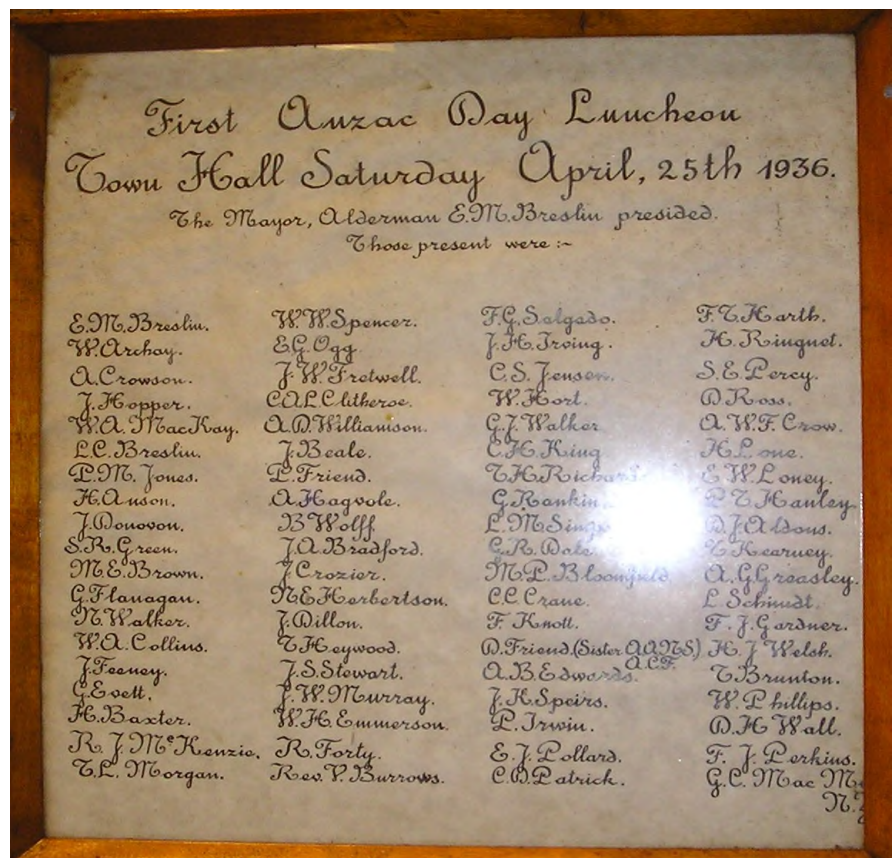 First Anzac Day Luncheon
Town Hall Saturday April, 25th 1936.
The Mayor, Alderman E.M.Breslin presided.
Those present were :~
E.M.Breslin.
W.Archay.
A.Crowson.
J.Hopper.
W.A. MacKay.
L.C.Breslin.
P.M. Jones.
H.Anson.
J.Donovon.
S.R.Green.
M.E.Brown.
G.Flanagan.
N.Walker.
W.A.Collins.
J.Feeney.
G.Evett.
H.Baxter.
R. J. McKenzie.
T.L. Morgan.
W.W.Spencer.
E.G.Ogg.
J.W.Fretwell.
C.A.L.Clitheroe.
A.D.Williamson.
J.Beale.
P.Friend.
A.Hagvole.
B Wolff.
J.A.Bradford.
J.Crozier.
N.E.Herbertson.
J.Dillon.
T.Heywood.
J.S.Stewart.
J.W.Murray.
W.H.Emmerson.
R.Forty.
Rev.V.Burrows.
F.G.Salgado.
J.H.Irving.
C.S.Jensen.
W.Hort.
G.J.Walker
C.H.King
T.H.Richard
G.Rankin
L.M.
G.R. Dale
M.P.Bloomfield
C.C.Crane.
F. Knott.
D.Friend.(Sister A.A.N.S.)
A.C.F.
A.B.Edwards.
J.K.Speirs.
P.Irwin.
E.J.Pollard.
C.D.Patrick.
F.T.Harth.
H.Ringuet.
S.E.Percy.
D.Ross.
A.W.F.Crow.
H.Lone.
E.W.Loney.
P T.Hanley.
D.J.Aldons.
T.Kearney.
A.G.Greasley.
L.Schmidt.
F.J.Gardner.
H.J.Welsh.
T.Brunton.
W.Phillips.
D.H Wall.
F. J.Perkins.
G.C. Mac
N.